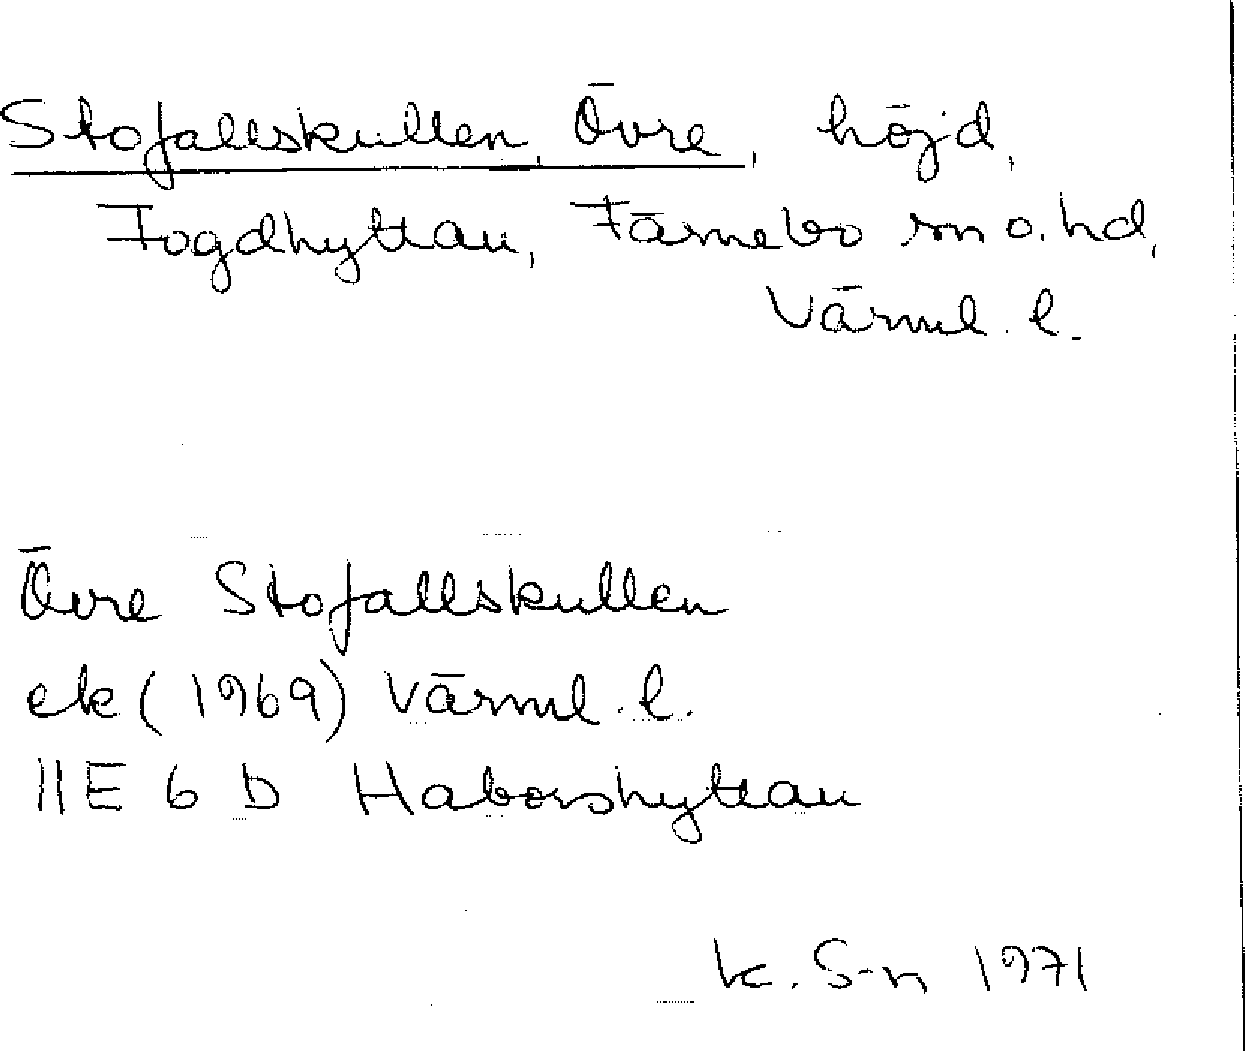 Stofallskullen, Övre, höjd,
Fogdhyttan, Färnebo sn o. hd,
Värml. l.
Övre Stofallskullen
ek (1969) Värml. l.
11E 6 D Haborshyttan
K. S-n 1971